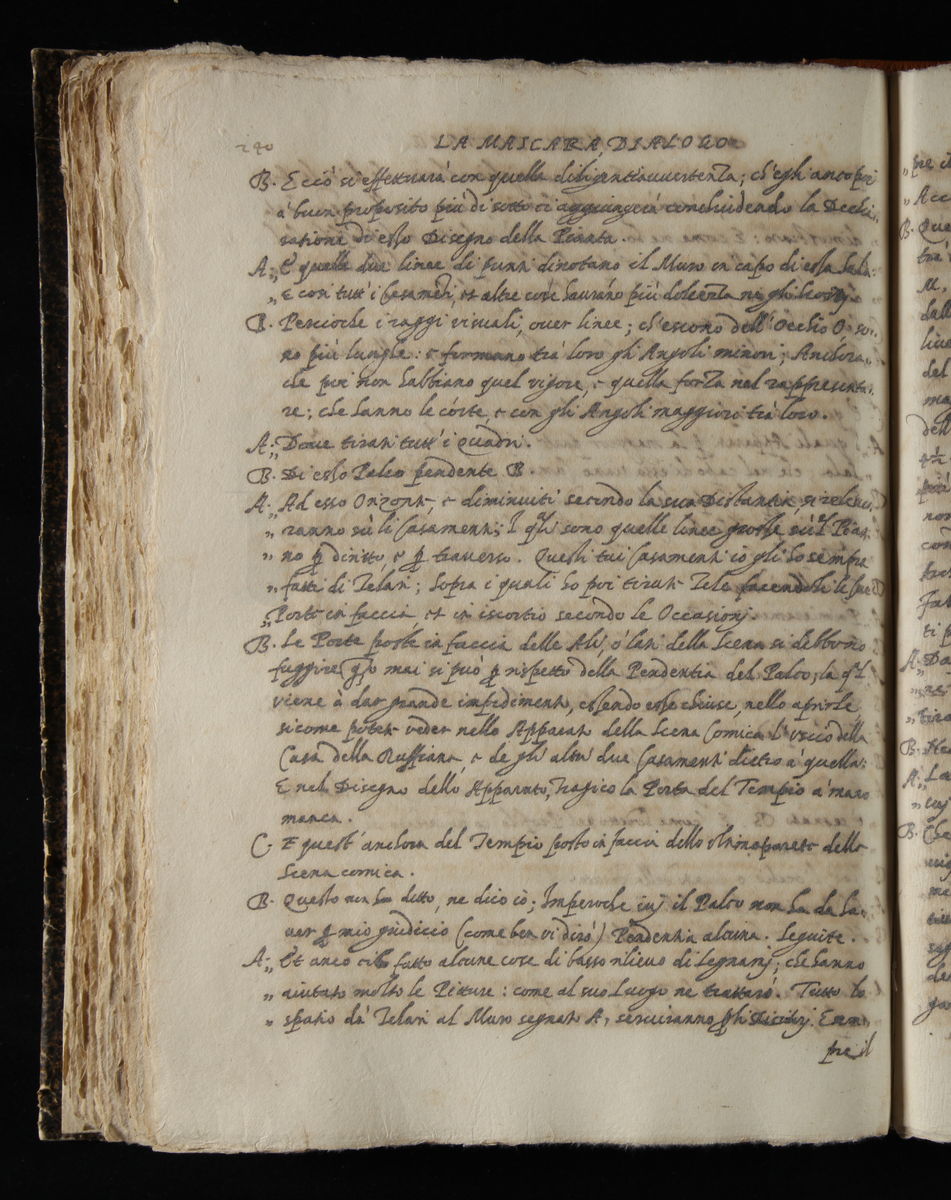 240
LA MASCARA, DIALOGO
B. E cciò si effettuarà con quella diligentiauuertenza; ch'egli anco poi
à buon proposito più di sotto ci aggiungerà conchiudendo la Dechia,
ratione di esso Disegno della Pianta.
A. „ E quelle due linee di punti dinotano il Muro in capo di essa Sala:
„ E con tutt'i Casameti, et altre cose hauranno più dolcezza ne gli Scorzij.
B. Percioche i raggi visuali, ouer linee; ch'escono dell'Occhio O. so,
no più lunghe: e formano trà loro gli Angoli minori; Anchora,
che poi non habbiano quel vigore, e quella forza nel rappresenta,
re; che hanno le córte e con gli Angoli maggiori trà loro.
A. „ Doue tirati tutt'i Quadri.
B. Di esso Palco pendente B.
A. „ Ad esso Orizonte, e diminuiti secondo la sua Distantia, si releue,
„ ranno sù li Casamenti; I qli sono quelle linee grosse sù'l Pia,
„ no p diritto, e p trauerso. Questi tui Casamenti io gli ho sempre
„ fatti di Telari; sopra i quali ho poi tirate Tele facendoli le sue
„ Porte in faccia, et in iscortio secondo le Occasionj.
B. Le Porte poste in faccia delle Ali, ò lati della Scena si debbono
fuggire qto mai si può p rispetto della Pendentia del Palco; la ql
viene à dar grande impedimento, essendo esse chiuse, nello aprirle
sicome potete veder nello Apparato della Scena Comica l'uscio della
Casa della Ruffiana, e de gli altri due Casamenti dietro à quella:
E nel Disegno dello Apparato, Tragico la Porta del Tempio à mano
manca.
C. E quest'anchora del Tempio posto in faccia dello parete della
Scena comica.
B. Questo non hò ditto, ne dico iò; Imperoche iuj il Palco non ha da ha,
uer p mio giudiccio (come ben vi dirò) Pendentia alcuna. Seguite.
A. „ Et anco ciò fatto alcune cose di basso rilieuo di Legnamj; che hanno
„ aiutato molto le Pitture: come al suo Luogo ne trattarò. Tutto lo
„ spatio dà Telari al Muro segnato A, seruiranno p gli Histrionj. E sem,
pre il